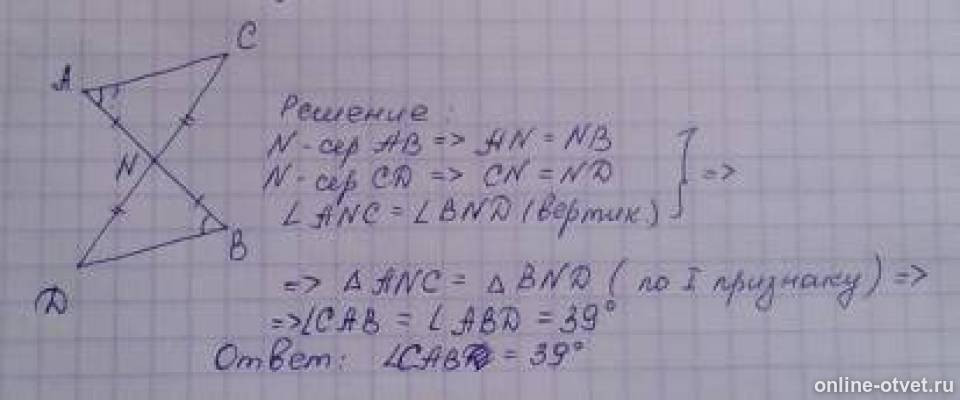 C
A
N
B
D
Решение:
N - сер AB => AN = NB
N - сер CD => CN = ND
∠ANC = ∠BND (вертик.)
=>
=> △ANC = △BND (по I признаку) =>
=> ∠CAB = ∠ABD = 39°
Ответ: ∠CAB = 39°
online-otvet.ru